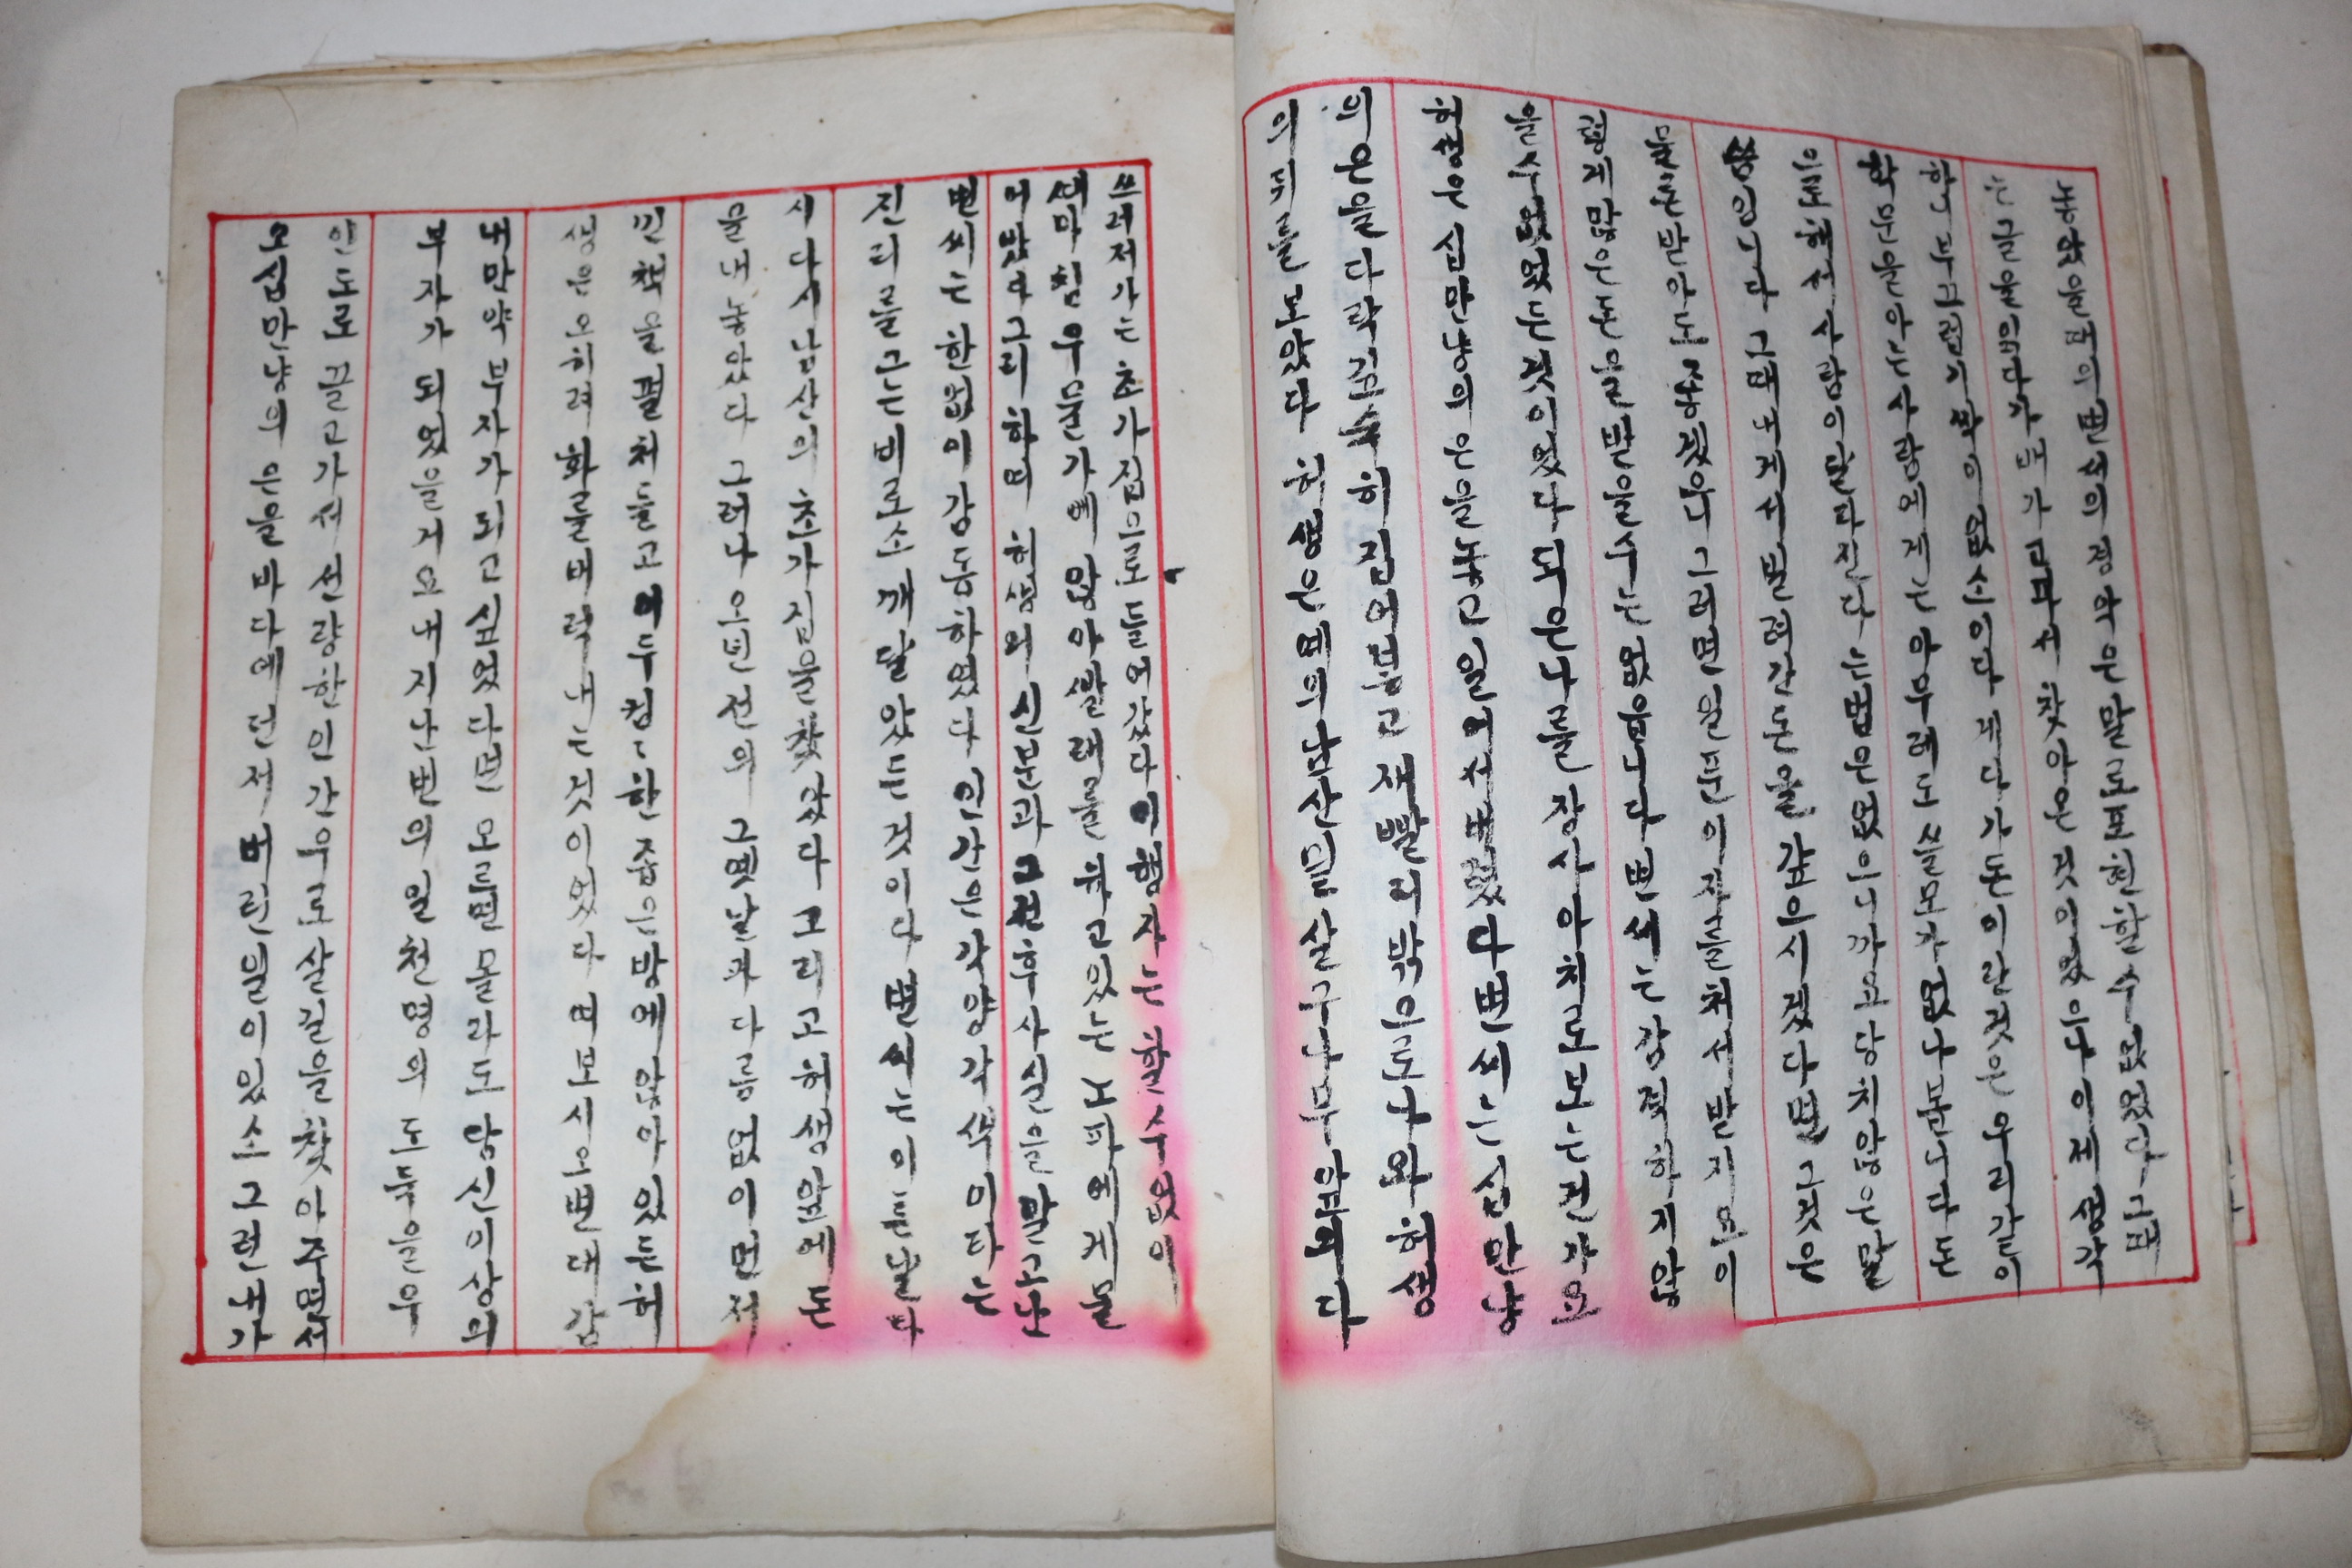 놓았을 때의 변씨의 경악은 말로 표현할 수 없었다 그때
는 글을 읽다가 때가 고파서 찾아온 것이었으나 이제 생각
하니 부끄럽기 짝이 없소이다 게다가 돈이란 것은 우리같이
학문을 아는 사람에게는 아무래도 쓸모가 없나 봅니다 돈
으로 해서 사람이 달라진다는 법은 없으니까요 당치않은 말
씀입니다 그때 내게서 빌려간 돈을 갚으시겠다면 그것은
물론 받아도 좋겠읍니다 그러면 일분이자를 쳐서 받지요 이
렇게 많은 돈을 받을 수는 없읍니다 변씨는 감격하지 않
을 수 없었든 것이었다 되려 나를 장사아치로 모는 건가요
허생은 십만냥의 은을 놓고 일어서 버렸다 변씨는 십만냥
의 은을 다락 깊숙히 집어넣고 재빨리 밖으로 나와 허생
의 뒤를 쫓았다 허생은 예의 남산밑 살구나무 아래 다
쓰러저가는 초가집으로 들어갔다 이 행자는 할 수 없이
때마침 우물가에 앉아 빨래를 하고 있는 노파에게 물
어 봤다 그리하여 허생의 신분과 그 전후사실을 알고 난
변씨는 한없이 감동하였다 인간은 각양각색이라는
진리를 그는 비로소 깨달았든 것이다 변씨는 이튿날 다
시 다시 남산의 초가집을 찾았다 그리고 허생 앞에 돈
을 내놓았다 그러나 오년 전의 그 옛날과 다름없이 먼저
낀 책을 펼처들고 어두컴컴한 좁은 방에 앉아있든 허
생은 오히려 화를 버럭 내는 것이었다 여보시오 변대감
내 만약 부자가 되고 싶었다면 모르면 몰라도 당신 이상의
부자가 되었을거요 내 지난번의 일천명의 도둑을 우
인도로 끌고 가서 선량한 인간으로 살길을 찾아 주면서
오십만냥의 은을 바다에 던저 버린 일이 있소 그런 내가